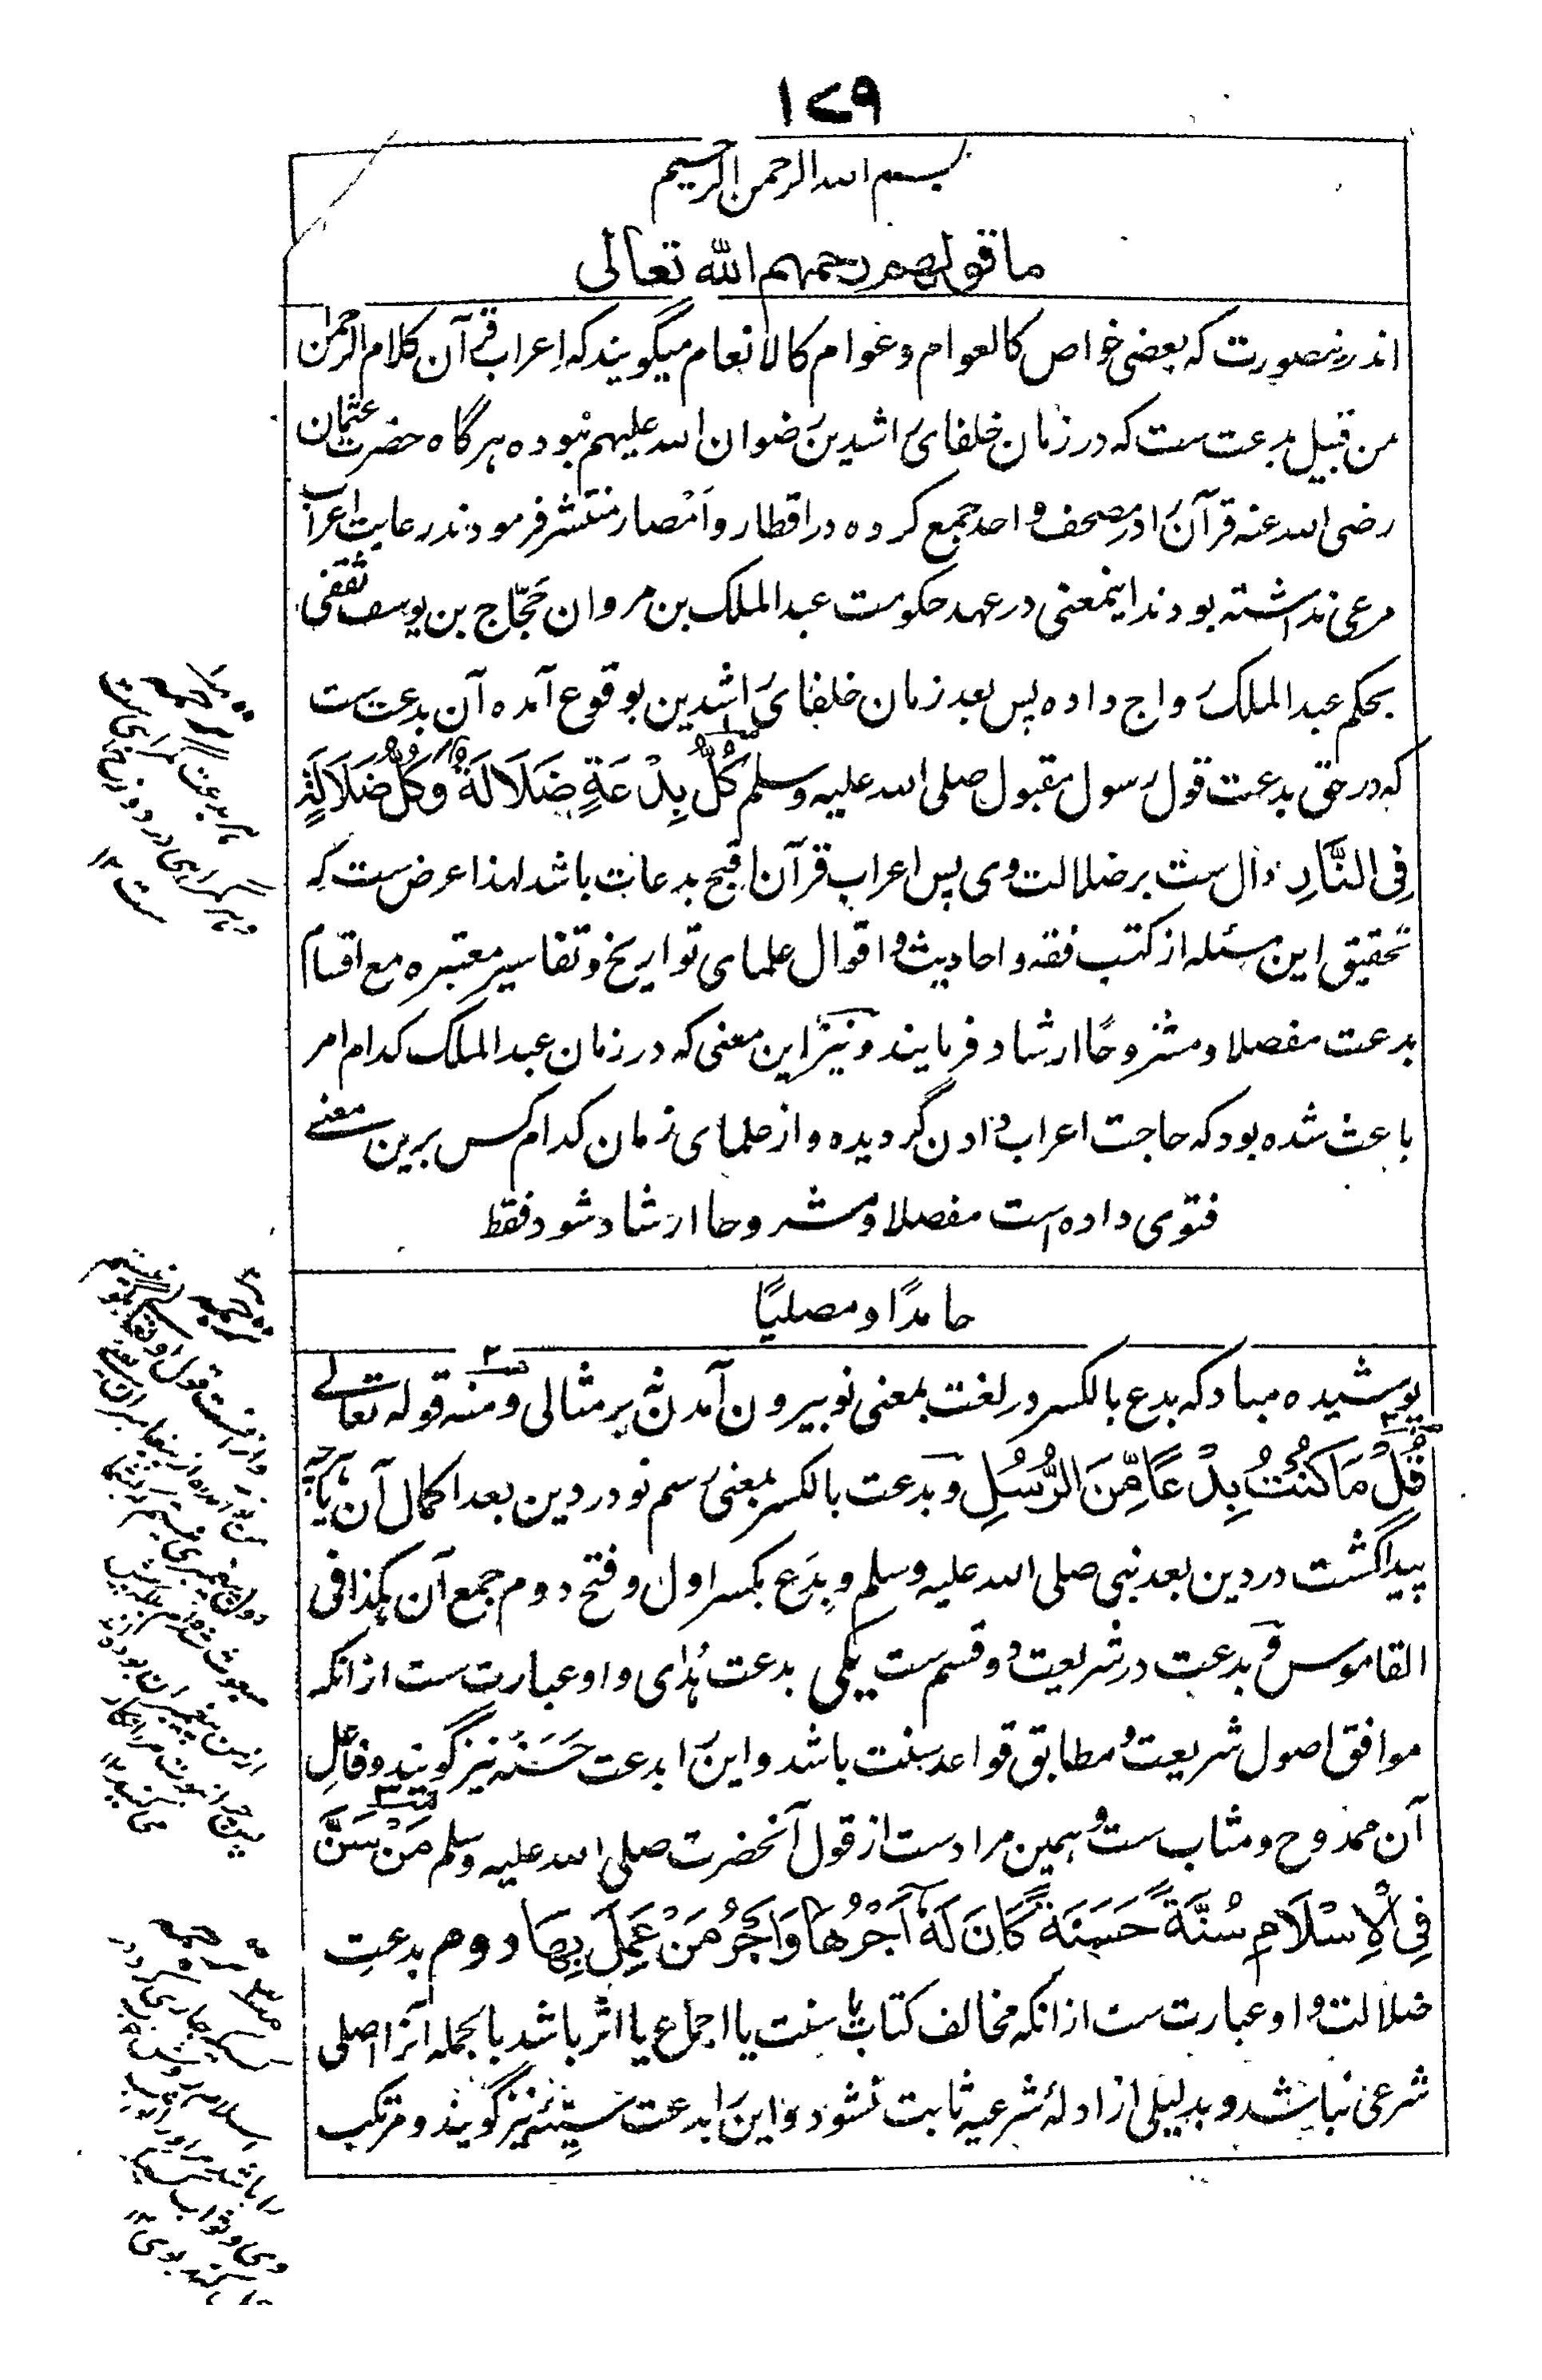 ١٧٩
بسم الله الرحمن الرحیم
ما قولهم رحمهم الله تعالی
اندرینصورت که بعضی خواص کالعوام و عوام کالانعام میگویند که اعراب قرآن کلام الرحمن
من قبیل بدعت ست که در زمان خلفای راشدین رضوان الله علیهم نبوده هرگاه حضرت عثمان
رضی الله عنه قرآن را در مصحف واحد جمع کرده در اقطار و اَمْصار منتشر فرمودند رعایت اعراب
مرعی نداشته بودند اینمعنی در عهد حکومت عبد الملک بن مروان حَجّاج بن یوسف ثقفی
بحکم عبد الملک رواج داده پس بعد زمان خلفای راشدین بوقوع آمده آن بدعت ست
که در حق بدعت قول رسول مقبول صلی الله علیه وسلم کُلُّ بِدْعَةٍ ضَلَالَةٌ وَکُلُّ ضَلَالَةٍ
فِی النَّارِ دال ست بر ضلالت وی پس اعراب قرآن اقبح بدعات باشد لهذا عرض ست که
تحقیق این مسئله از کتب فقه و احادیث و اقوال علمای تواریخ و تفاسیر معتبره مع اقسام
بدعت مفصلا و مشروحًا ارشاد فرمایند و نیز این معنی که در زمان عبد الملک کدام امر
باعث شده بود که حاجت اعراب دادن گردیده و از علمای زمان کدام کس برین معنے
فتوی داده است مفصلا و مشروحا ارشاد شود فقط
حامدًا و مصلیًا
پوشیده مباد که بدع بالکسر در لغت بمعنی نو بیرون آمدن نه بر مثالی و منه قوله تعالے
قُلْ مَا کُنْتُ بِدْعًا مِّنَ الرُّسُلِ و بدعت بالکسر بمعنی رسم نو در دین بعد اکمال آن یا هرچه
پیدا گشت در دین بعد نبی صلی الله علیه وسلم و بِدَع بکسر اول و فتح دوم جمع آن کذا فی
القاموس و بدعت در شریعت دو قسم ست یکی بدعت هُدٰی و او عبارت ست از انکه
موافق اصول شریعت و مطابق قواعد سنت باشد و این را بدعت حَسَنَه نیز گویند و فاعل
آن ممدوح و مثاب ست و همین مراد ست از قول آنحضرت صلی الله علیه وسلم مَنْ سَنَّ
فِی الْاِسْلَامِ سُنَّةً حَسَنَةً کَانَ لَهٗ اَجْرُهَا وَ اَجْرُ مَنْ عَمِلَ بِهَا دوم بدعتِ
ضلالت و او عبارت ست از انکه مخالف کتاب یا سنت یا اجماع یا اثر باشد بالجمله آنرا اصلی
شرعی نباشد و بدلیلی از ادلهٔ شرعیه ثابت نشود و این را بدعت سَیِّئه نیز گویند و مرتکب
ترجمه
هر بدعت گمراهی ست
و هر گمراهی در دوزخ
ست ١٢
ترجمه
ترجمه